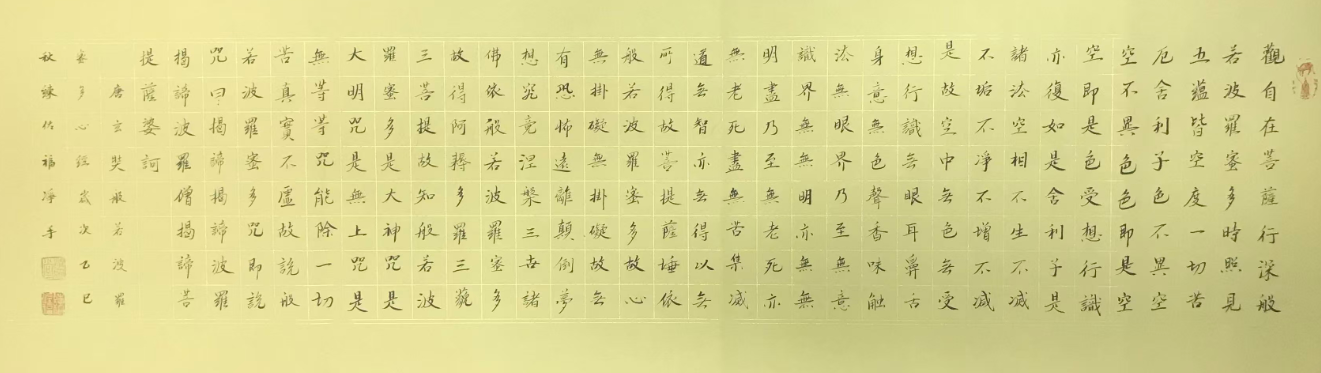 觀自在菩薩行深般
若波羅蜜多時照見
五蘊皆空度一切苦
厄舍利子色不異空
空不異色色即是空
空即是色受想行識
亦復如是舍利子是
諸法空相不生不滅
不垢不淨不增不減
是故空中无色无受
想行識无眼耳鼻舌
身意無色聲香味觸
法無眼界乃至無意
識界無無明亦無無
明盡乃至無老死亦
無老死盡無苦集滅
道无智亦无得以无
所得故菩提薩埵依
般若波羅蜜多故心
無掛礙無掛礙故无
有恐怖遠離顛倒夢
想究竟涅槃三世諸
佛依般若波羅蜜多
故得阿耨多羅三藐
三菩提故知般若波
羅蜜多是大神咒是
大明咒是無上咒是
無等等咒能除一切
苦真實不虛故說般
若波羅蜜多咒即說
咒曰揭諦揭諦波羅
揭諦波羅僧揭諦菩
提薩婆訶
唐玄奘般若波羅
蜜多心經歲次乙巳
秋佑福淨手